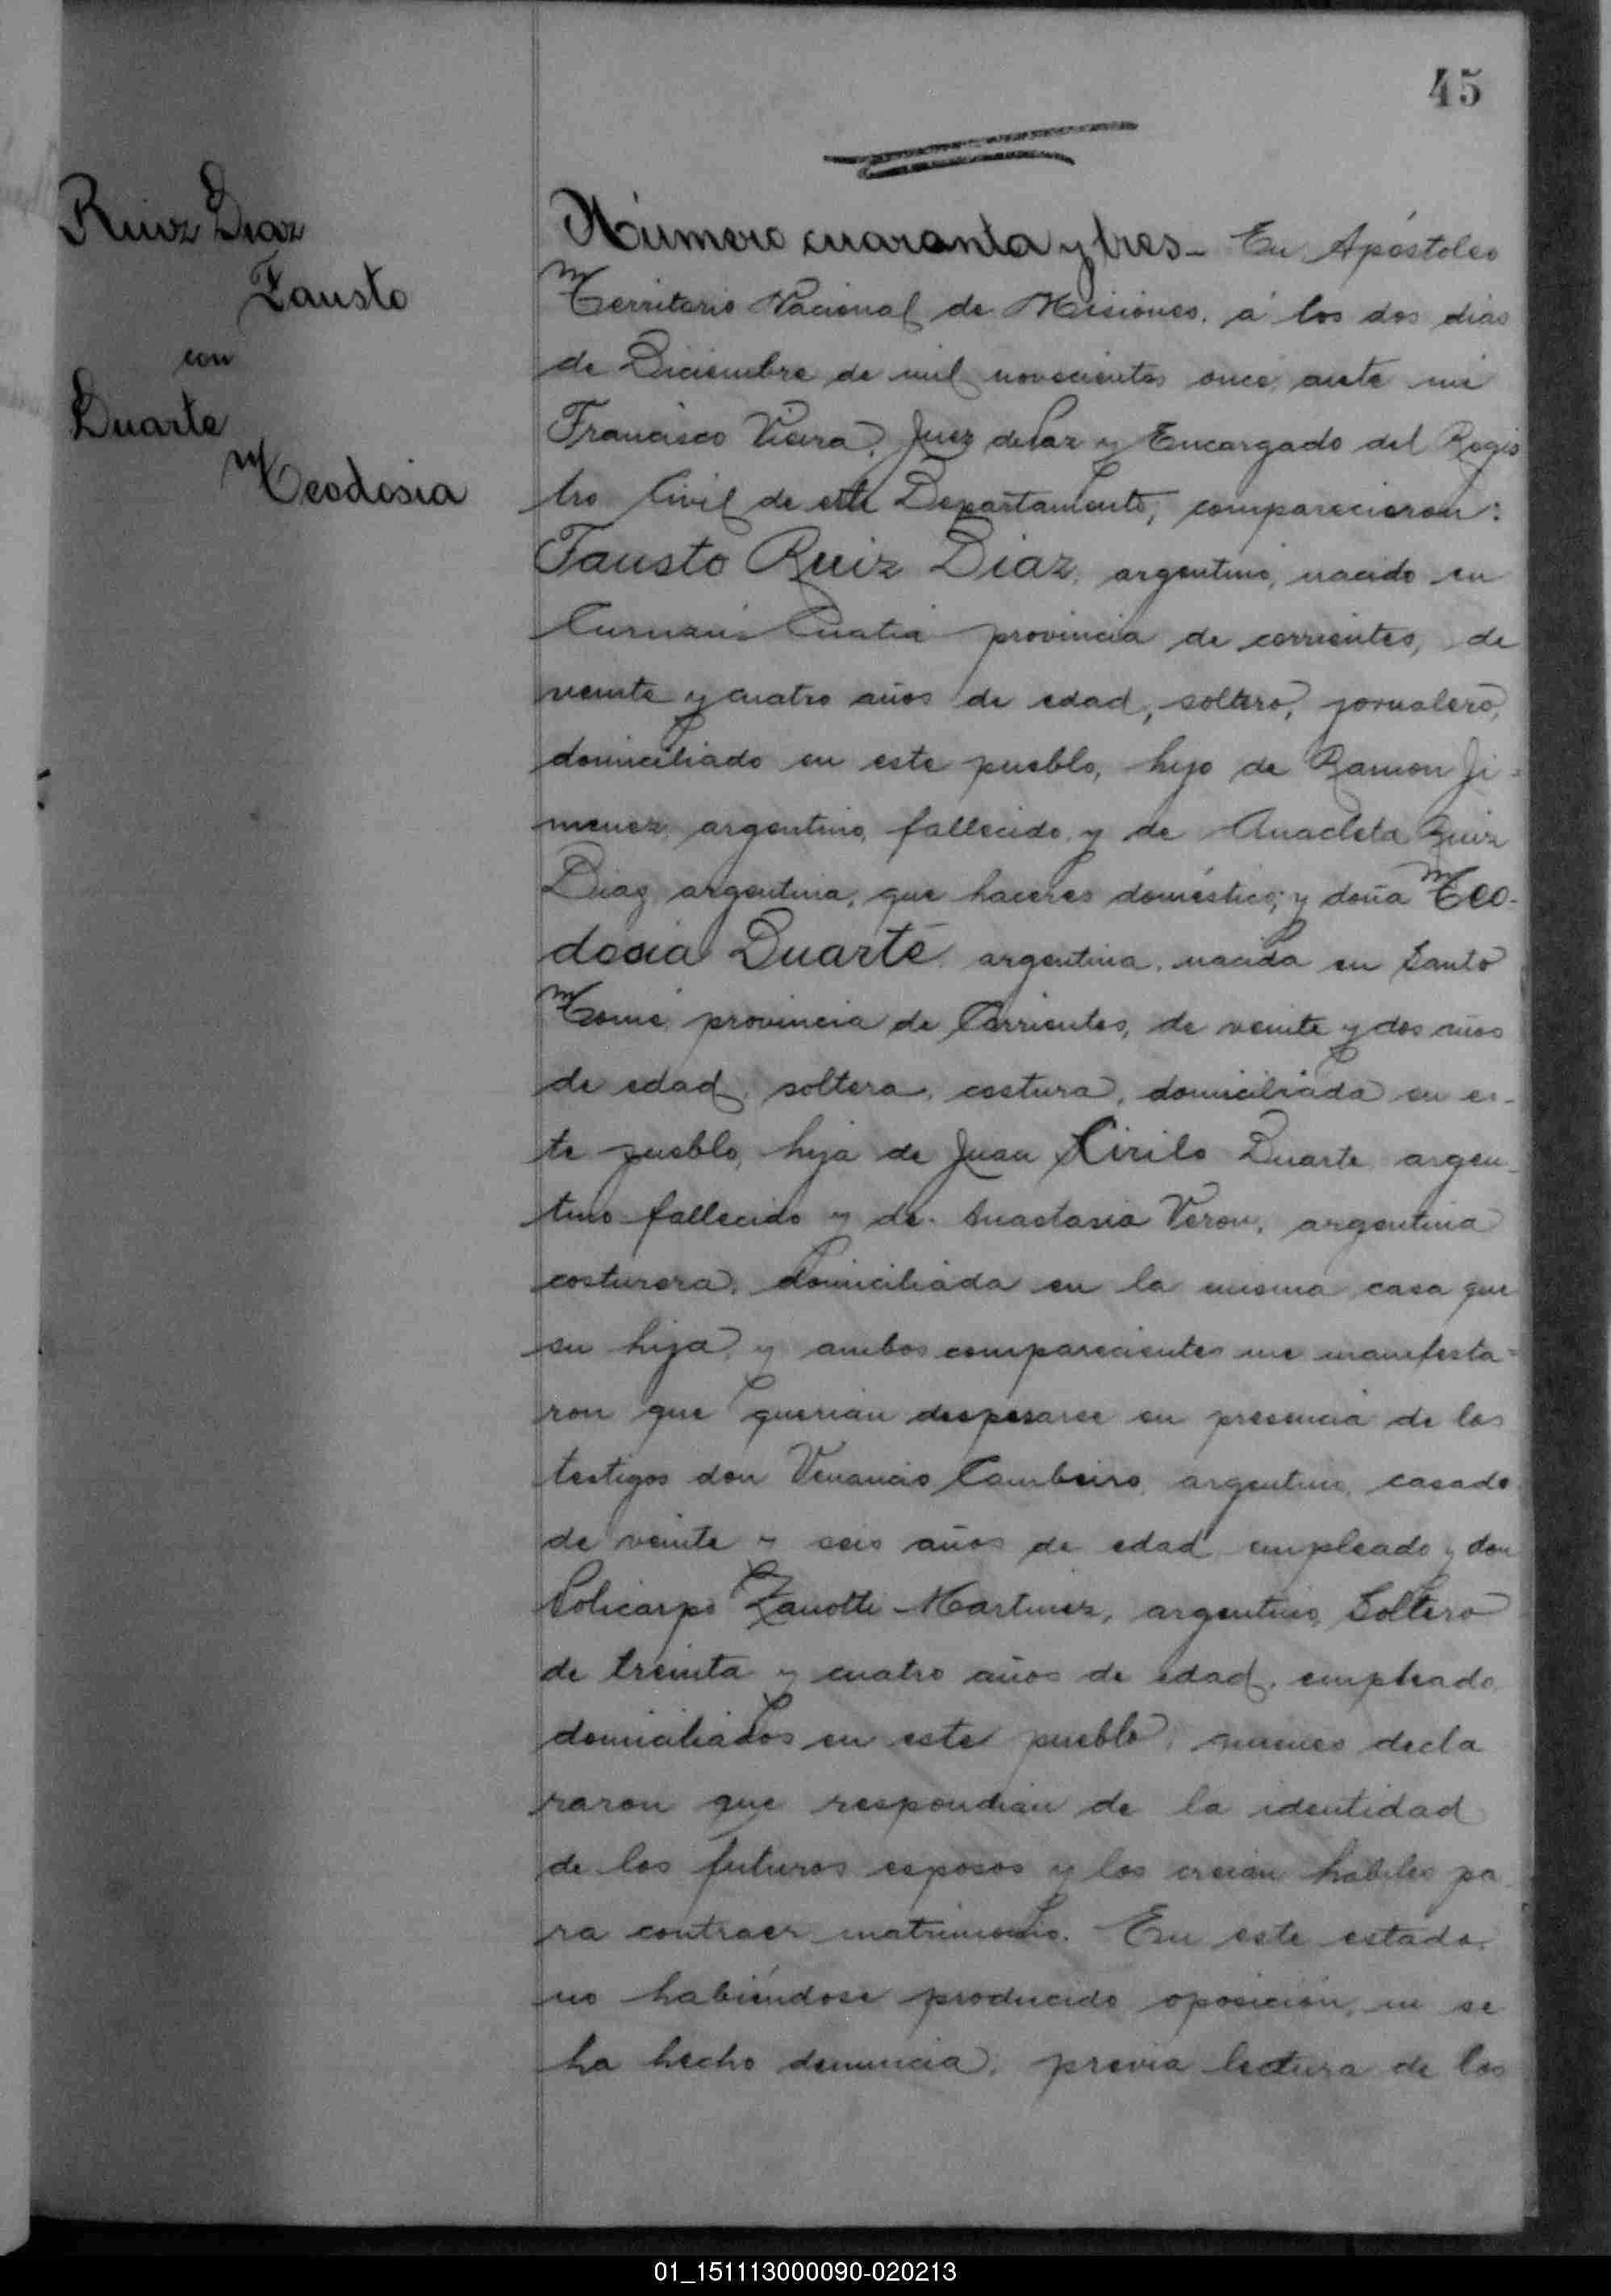 45
Ruiz Diaz
Fausto
con
Duarte
Teodosia
Número cuaranta y tres - En Apóstoles
Territorio Nacional de Misiones, á los dos dias
de Diciembre de mil novecientos once, ante mi
Francisco Vieira, Juez de Paz y Encargado del Regis
tro Civil de este Departamento, comparecieron:
Fausto Ruiz Diaz, argentino, nacido en
Curuzú-Cuatia provincia de corrientes, de
veinte y cuatro años de edad, soltero, jornalero,
domiciliado en este pueblo, hijo de Ramon Ji-
menez, argentino, fallecido y de Anacleta Ruiz
Diaz, argentina, que haceres doméstico; y doña Teo-
dosia Duarte, argentina, nacida en Santo
Tomé, provincia de Corrientes, de veinte y dos años
de edad, soltera, costura, domiciliada en es-
te pueblo, hija de Juan Cirilo Duarte, argen-
tino fallecido y de Anastasia Veron, argentina
costurera, domiciliada en la misma casa que
su hija, y ambos comparecientes me manifesta-
ron que querian desposarse en presencia de los
testigos don Venancio Cambeiro, argentino, casado
de veinte y seis años de edad, empleado y don
Policarpo Zanotti Martinez, argentino, Soltero
de treinta y cuatro años de edad, empleado
domiciliados en este pueblo, quienes decla
raron que respondian de la identidad
de los futuros esposos y los creian habiles pa
ra contraer matrimonio. En este estado,
no habiéndose producido oposición, ni se
ha hecho denuncia, previa lectura de los
01_151113000090-020213